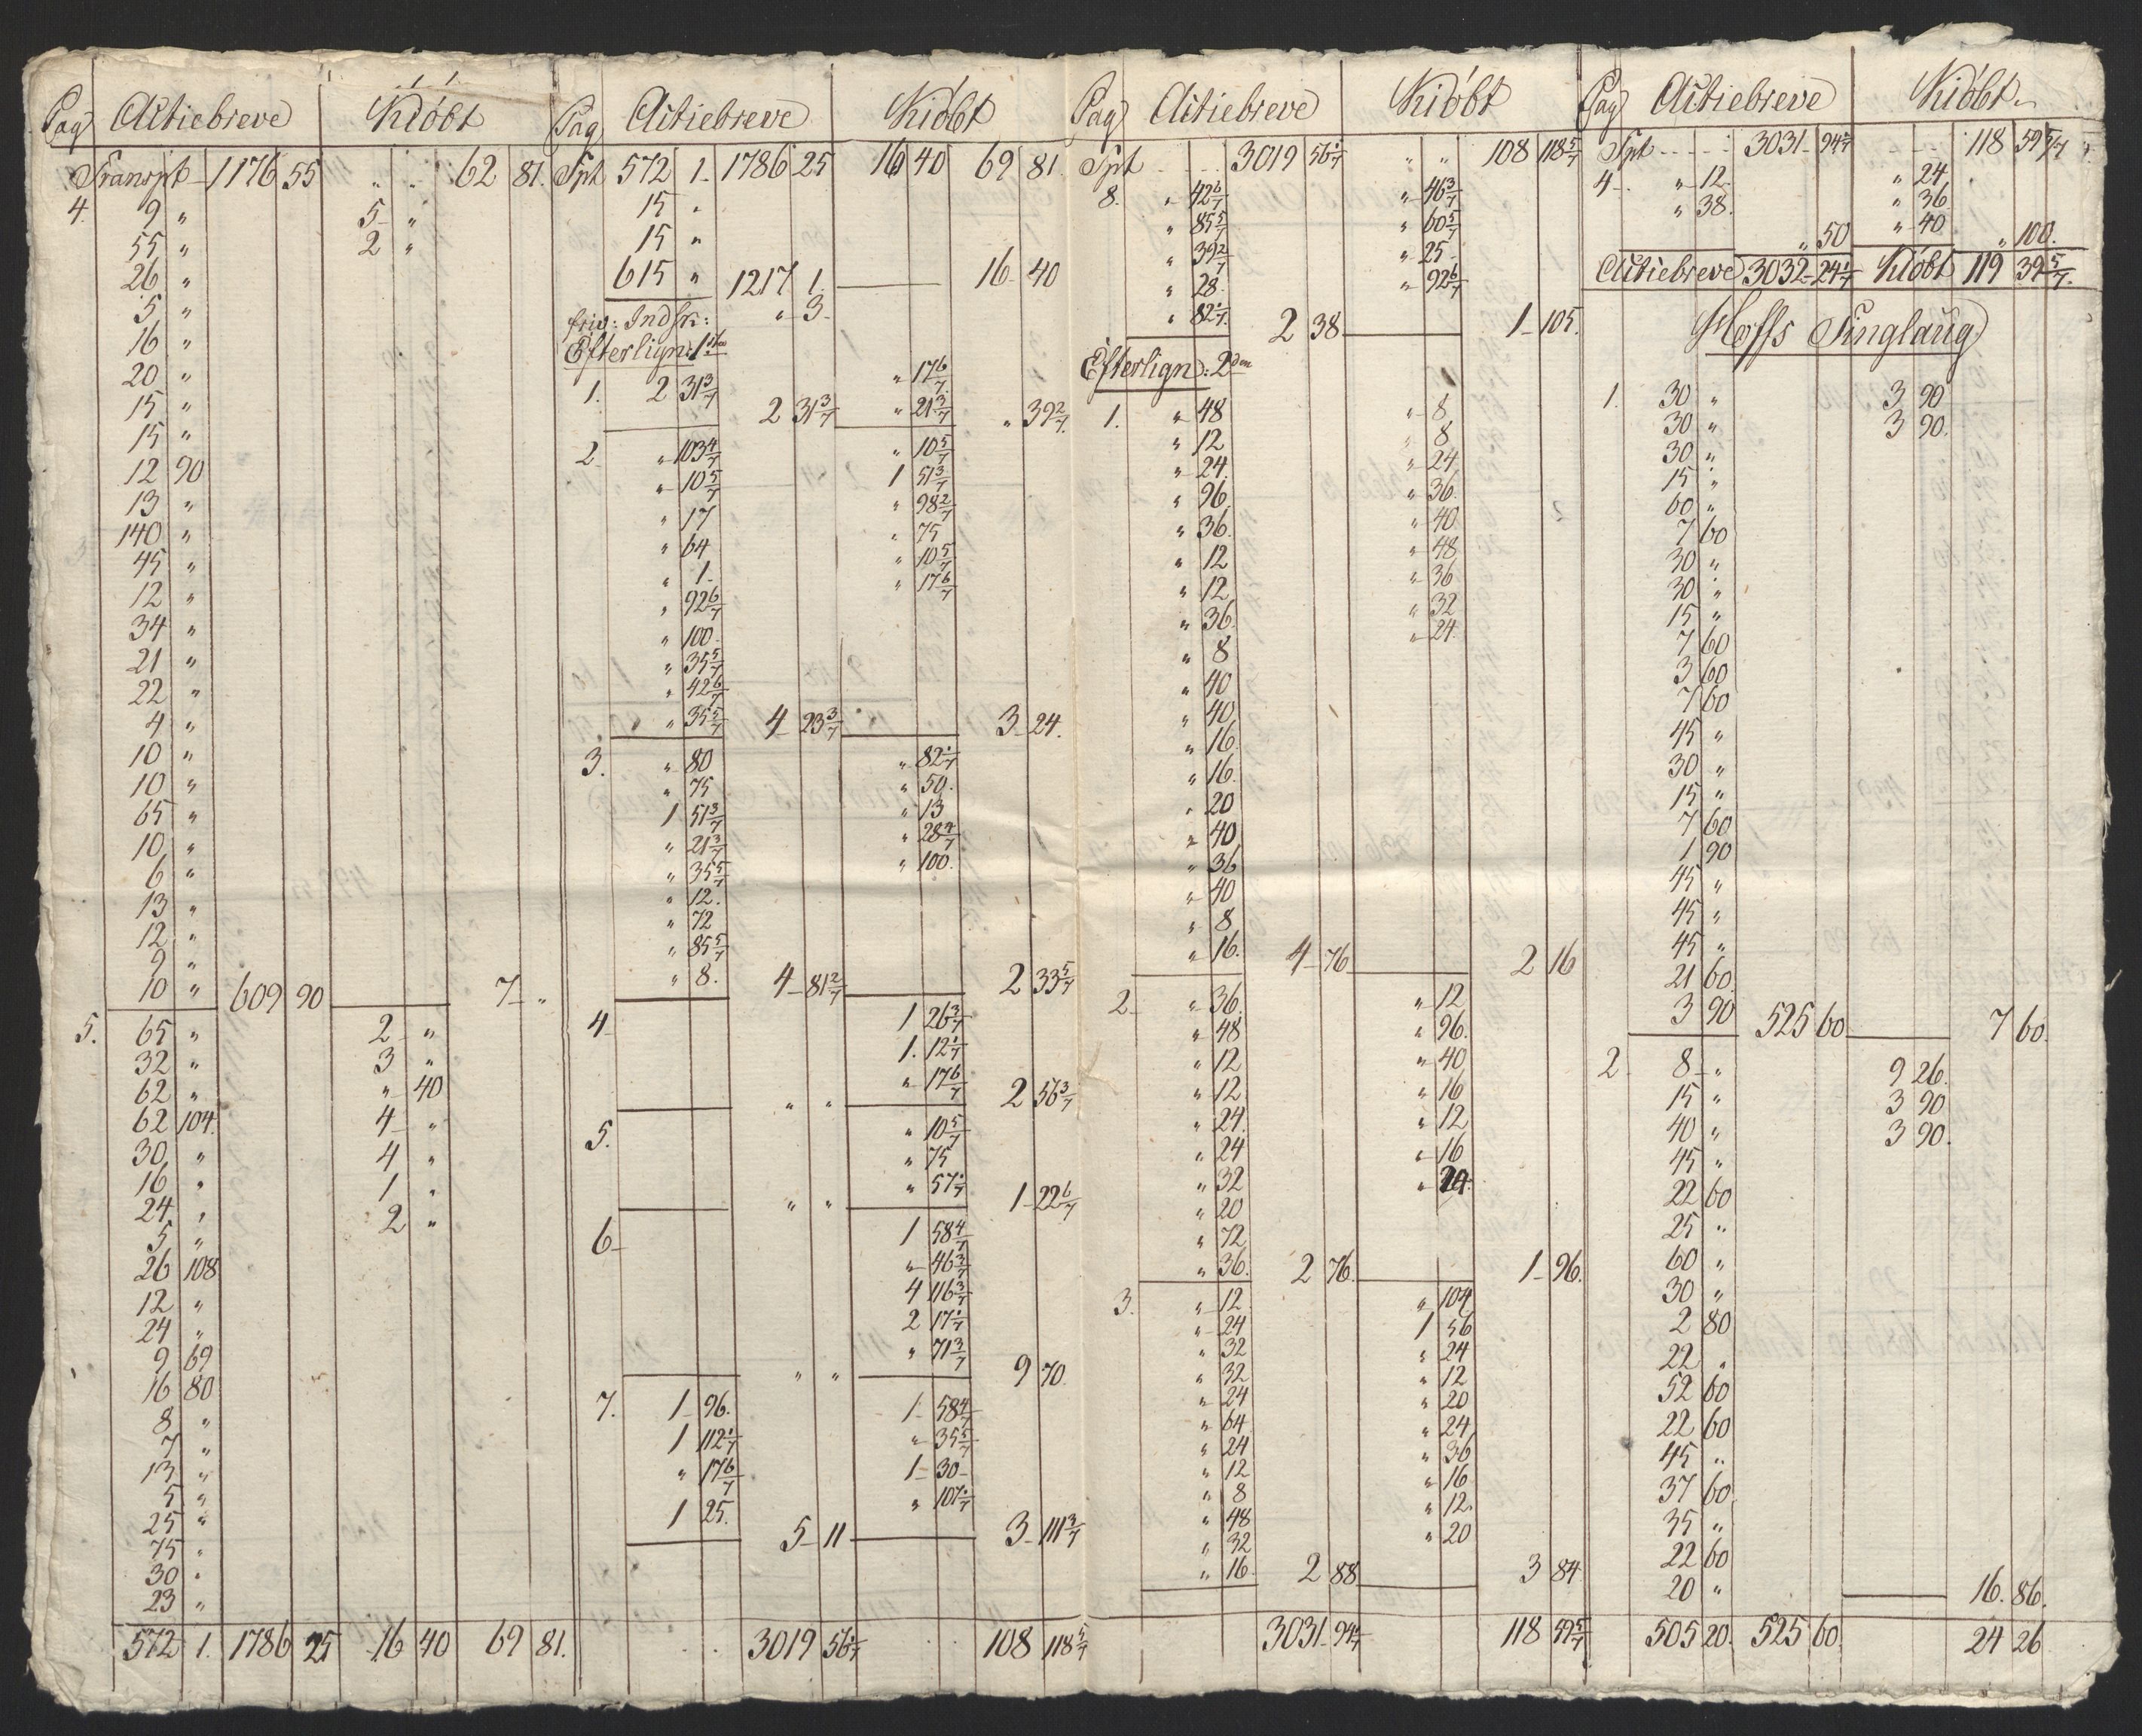 Pag Actiebreve Kióbt
Transpt 1176 55 " " 62 81.
4. 9 " 5 "
55 " 2 "
26 "
5 "
16 "
20 "
15 "
15 "
12 90
13 "
140 "
45 "
12 "
34 "
21 "
22 "
4 "
10 "
10 "
65 "
10 "
6 "
13 "
12 "
9 "
10 " 609 90 7 "
5. 65 " 2 "
32 " 3 "
62 " " 40
62 104. 4 "
30 " 4 "
16 " 1 "
24 " 2 "
5 "
26 108
12 "
24 "
9 69
16 80
8 "
7 "
13 "
5 "
25 "
75 "
30 "
23 "
572 1. 1786 25 16 40 69 81.
Pag Actiebreve Kióbt
Tpt 572 1 1786 25 16 40 69 81
15 "
15 "
615 " 1217 1. 16 40
friv: Indsk: " 3
Efterlign: 1ste
1. 2 31 3/7 " 17 6/7
2 31 3/7 " 21 3/7 " 39 2/7
2 " 103 4/7 " 10 5/7
" 10 5/7 1 51 3/7
" 17 " 98 2/7
" 64 " 75
" 1 " 10 5/7
" 92 6/7 " 17 6/7
" 100
" 35 5/7
" 42 6/7
" 35 5/7 4 23 3/7 3 24.
3. " 80 " 82 1/7
" 75 " 50.
1 51 3/7 " 13
" 21 3/7 " 28 4/7
" 35 5/7 " 100.
" 12.
" 72
" 85 5/7
" 8. 4 81 2/7 2 33 5/7
4 1 26 3/7
1. 12 1/7
" 17 6/7
" " 2 56 3/7
5. " 10 5/7
" 75
" 57 1/7
" " 1 22 6/7
6 1 58 4/7
" 46 3/7
4 116 3/7
2 17 1/7
" 71 3/7
" " 9 70.
7. 1 96. 1 58 4/7
1 112 1/7 " 35 5/7
" 17 6/7 1 30
1 25. " 107 1/7
5 11 3 111 3/7
3019 56 1/7 108 118 5/7
Pag Actiebreve Kióbt
Tpt 3019 56 1/7 " " 108 118 5/7
8. " 42 6/7 " 46 3/7
" 85 5/7 " 60 5/7
" 39 2/7 " 25
" 28. " 92 6/7
" 82 1/7. 2 38 1 105.
Efterlign: 2den
1. " 48 " 8
" 12 " 8
" 24. " 24
" 96. " 36.
" 36. " 40
" 12 " 48
" 12 " 36
" 36. " 32
" 8 " 24
" 40
" 40
" 16.
" 16.
" 20
" 40
" 36
" 40
" 8
" 16. 4 76 2 16
2 " 36. " 12
" 48 " 96.
" 12 " 40
" 12. " 16
" 24. " 12
" 24 " 16
" 32 " 24
" 20
" 72
" 36. 2 76. 1 96.
3. " 12. " 104
" 24 1 56
" 32 " 24
" 32 " 12
" 24 " 20
" 64 " 24
" 24 " 36
" 12 " 16
" 8 " 12.
" 48 " 20
" 32
" 16 2 88 3 84
3031 94 1/7 118 59 5/7
Pag Actiebreve Kióbt
Tpt 3031 94 1/7 118 59 5/7
4 " 12 " 24
" 38. " 36
" 50 " 40 " 100.
Actiebreve 3032 24 1/7 Kióbt 119 39 5/7.
Hoffs Tinglaug
1. 30 " 3 90
30 " 3 90.
30 "
15 "
60 "
7 60
30 "
30 "
15 "
7 60
3 60
7 60
45 "
30 "
15 "
7 60
1 90
45 "
45 "
45 "
21 60
3 90 525 60 7 60.
2 8 " 9 26.
15 " 3 90
40 " 3 90.
45 "
22 60
25 "
60 "
30 "
2 80
22 "
52 60
22 60
45 "
37 60
35 "
22 60
20 " 16. 86.
505 20. 525 60. 24 26